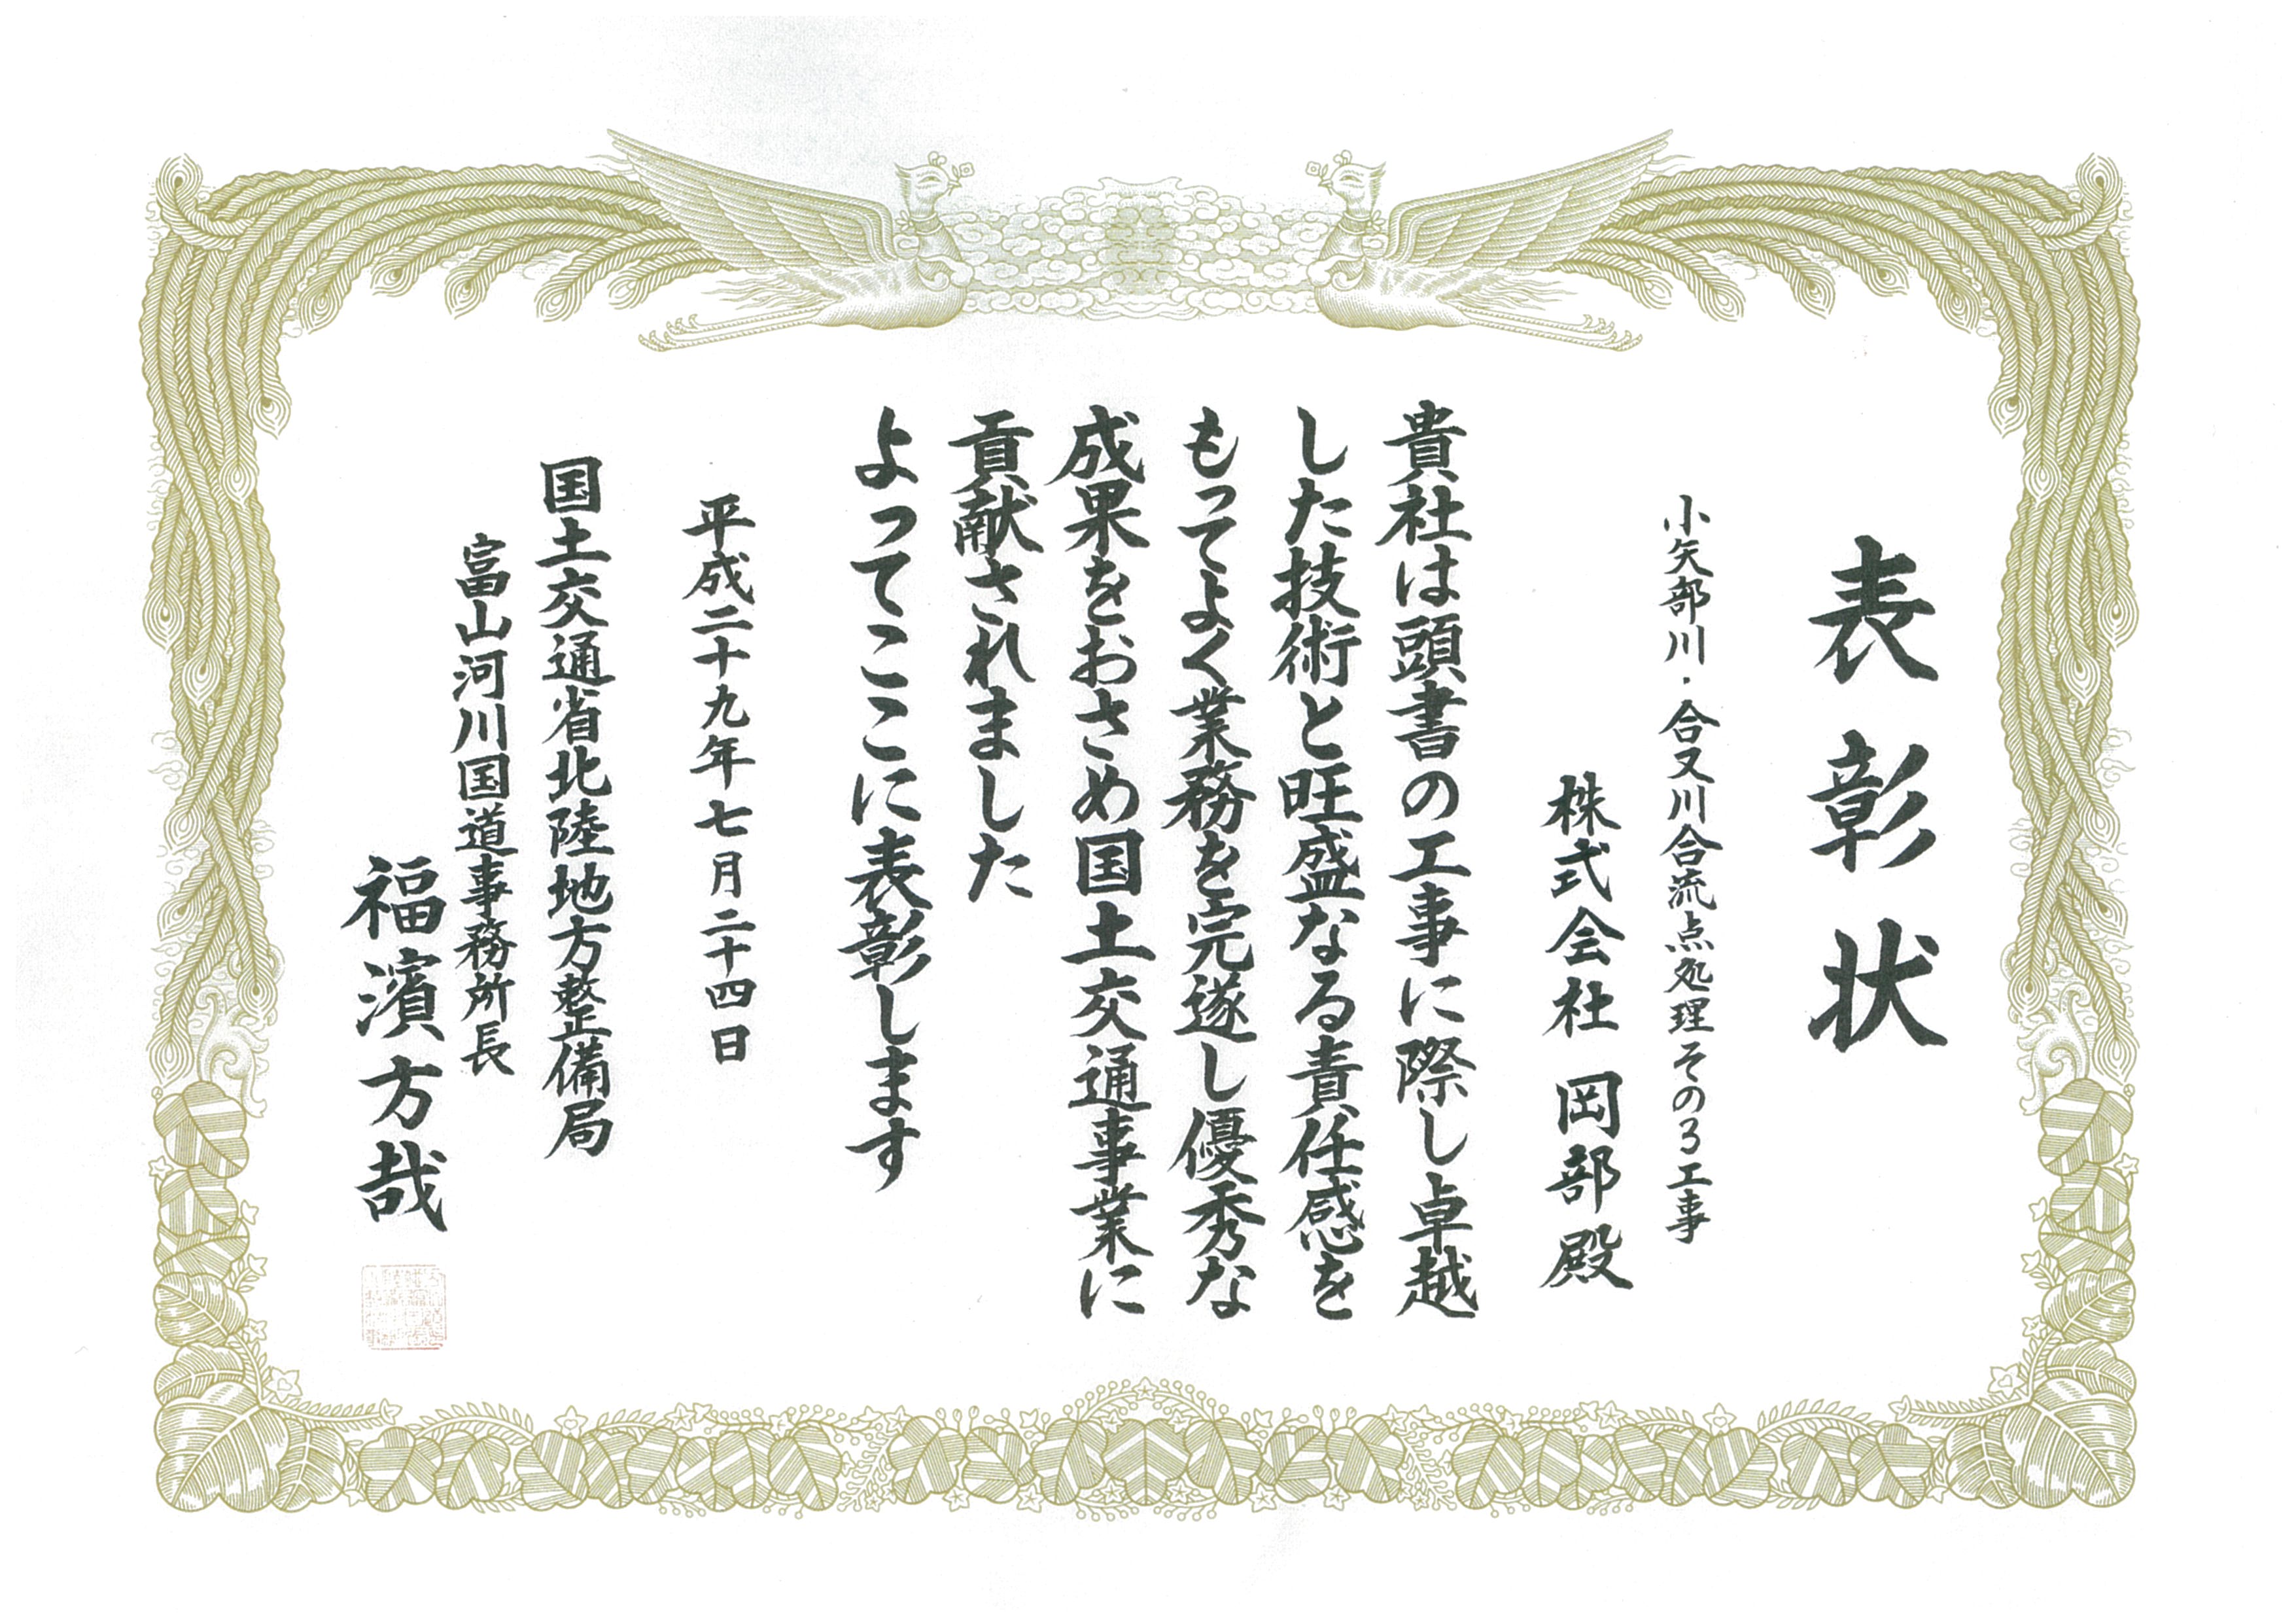 表彰状
小矢部川・合又川合流点処理その3工事
株式会社 岡部殿
貴社は頭書の工事に際し卓越
した技術と旺盛なる責任感を
もってよく業務を完遂し優秀な
成果をおさめ国土交通事業に
貢献されました
よってここに表彰します
平成二十九年七月二十四日
国土交通省北陸地方整備局
富山河川国道事務所長
福濱方哉